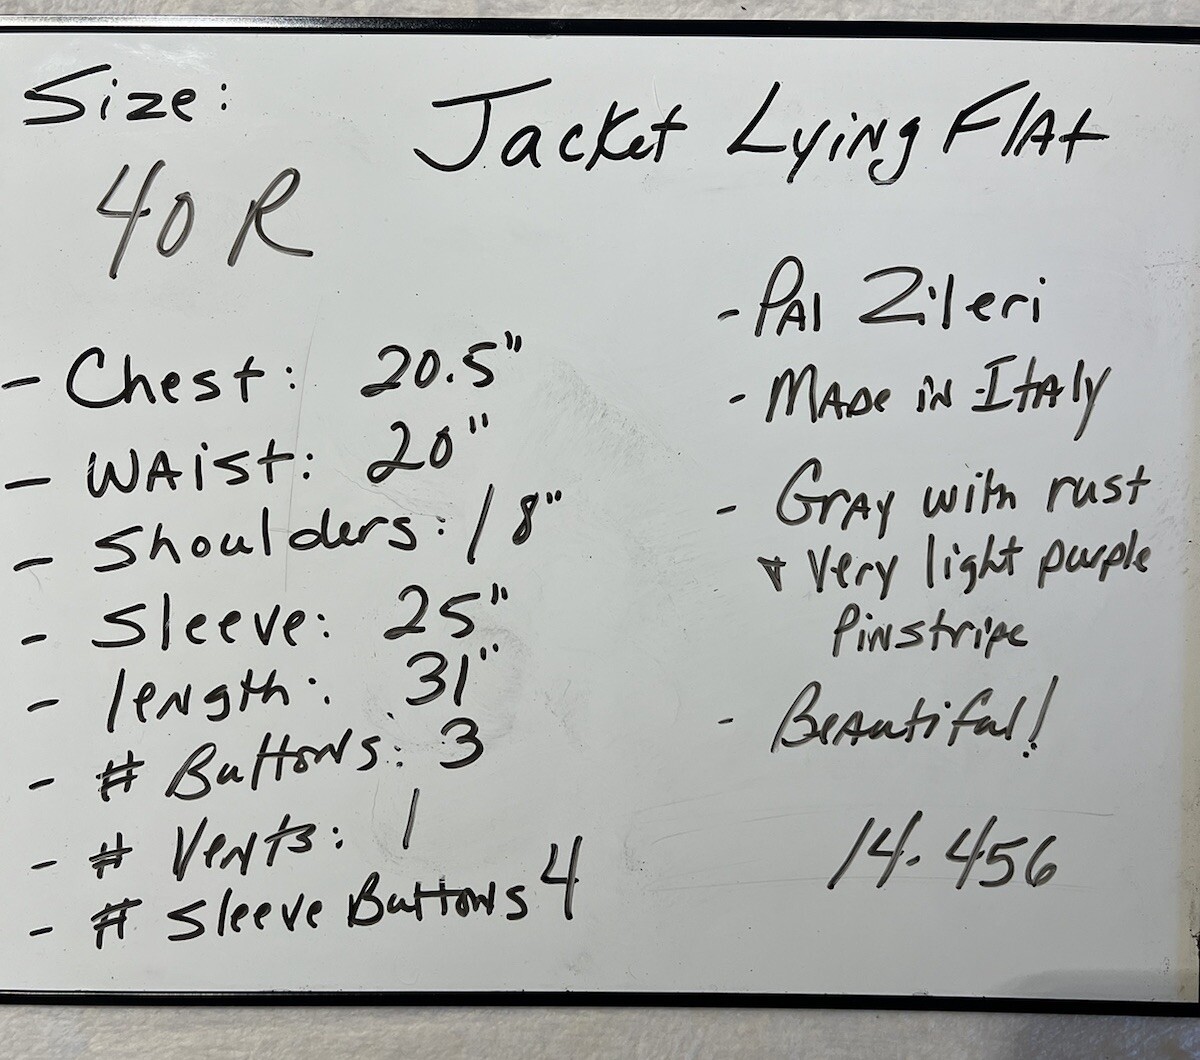 Size:
Jacket Lying Flat
40 R
- Chest: 20.5"
- Waist: 20"
- Shoulders: 18"
- Sleeve: 25"
- length: 31"
- # Buttons: 3
- # Vents: 1
- # Sleeve Buttons 4
- Pal Zileri
- Made in Italy
- Gray with rust
+ very light purple
Pinstripe
- Beautiful!
14.456